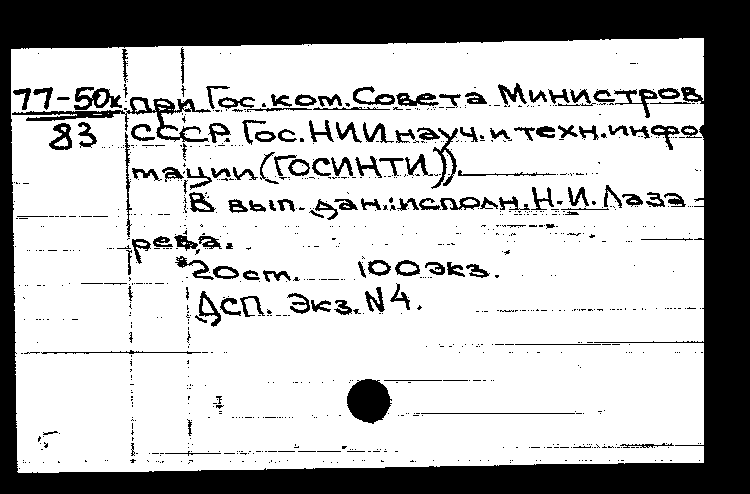 77-50к при Гос. ком. Совета Министров
83 СССР. Гос. НИИ науч. и техн. инфор
мации (ГОСИНТИ)).
В вып. дан.: исполн. Н. И. Лаза-
рева.
20 ст. 100 экз.
ДСП. Экз. N 4.